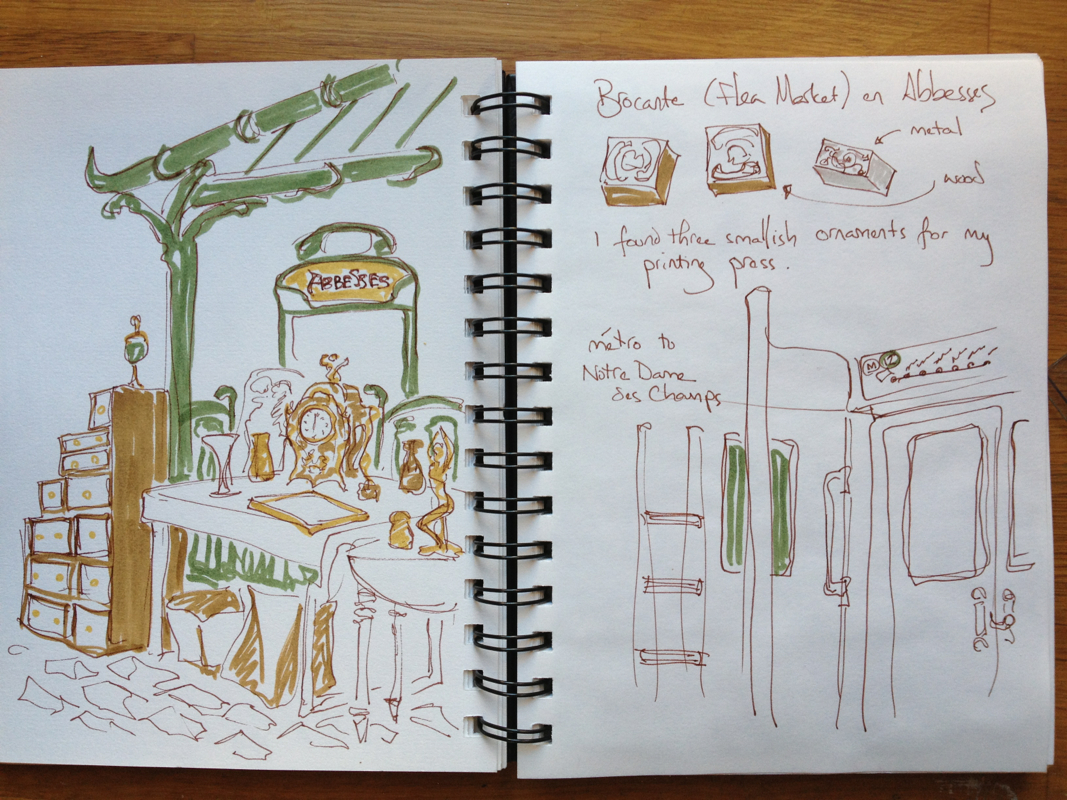 ABBESSES
Brocante (Flea Market) en Abbesses
metal
wood
I found three smallish ornaments for my
printing press.
métro to
Notre Dame
des Champs
M 12